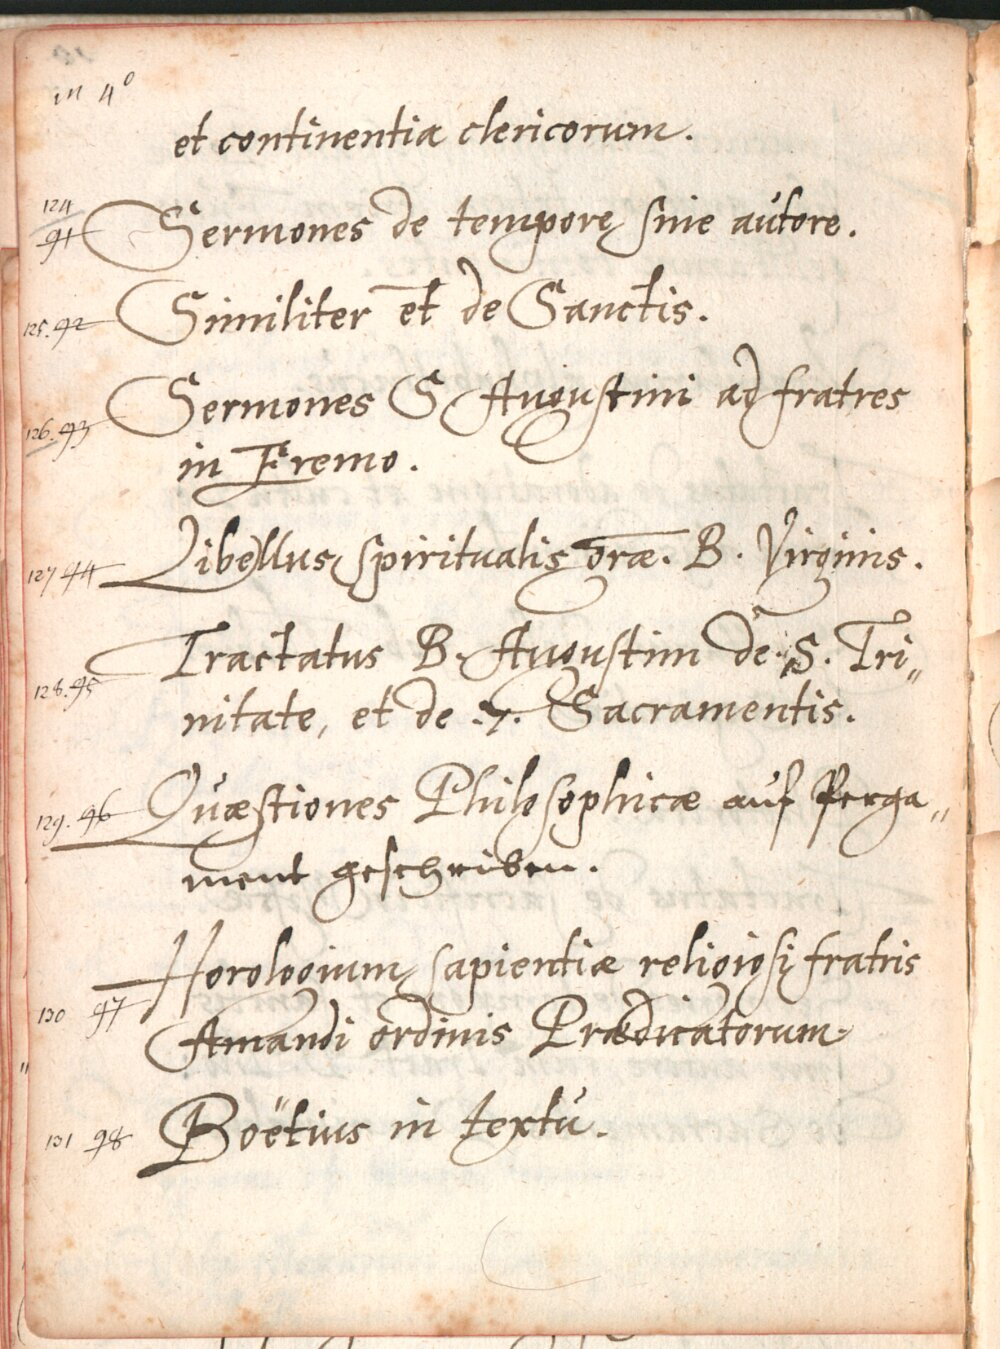 in 4°
et continentia clericorum.
124
91 Sermones de tempore, sine autore.
125. 92 Similiter et de Sanctis.
126. 93 Sermones S Augustini ad fratres
in Eremo.
127 94 Libellus spiritualis oræ. B. Virginis.
128. 95 Tractatus B. Augustini de. S. Tri„
nitate, et de .7. Sacramentis.
129. 96 Quæstiones Philosophicæ auf Perga„
ment geschriben.
130 97 Horologium sapientiæ religiosi fratris
Amandi ordinis Prædicatorum
131 98 Boëtius in textu.